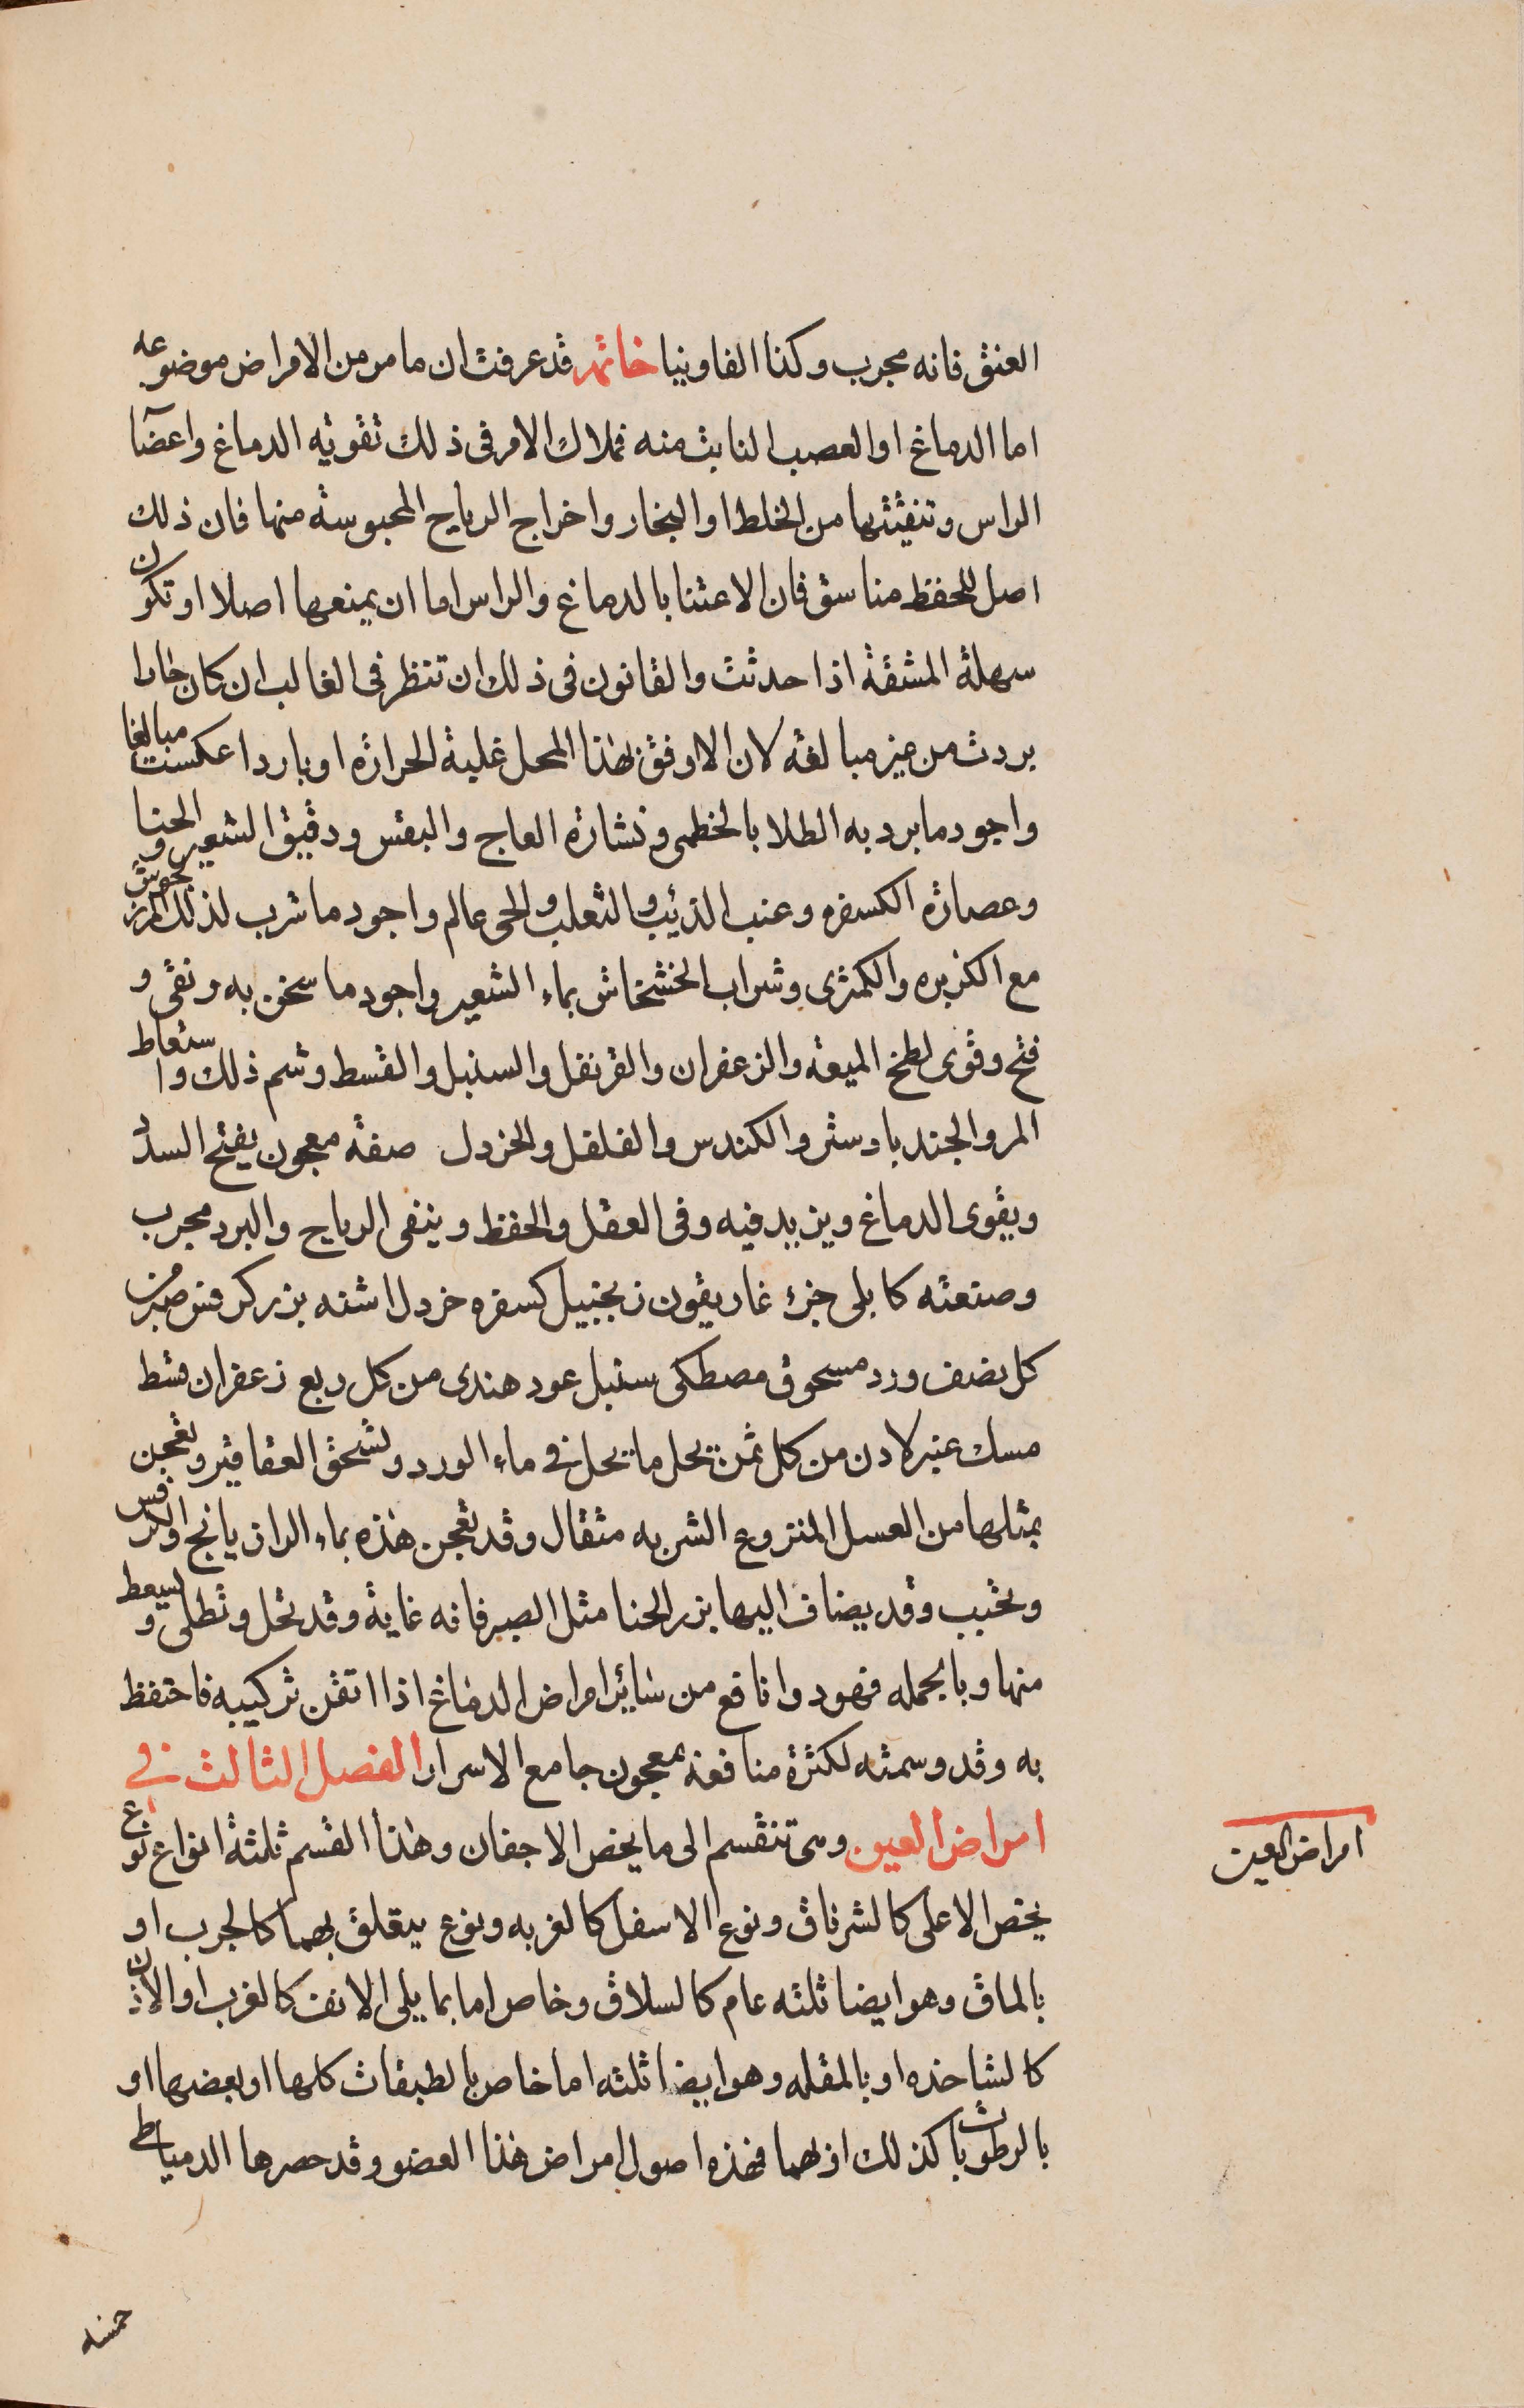 العنق فانه مجرب وكذا الفاوينا خاتمه قد عرفت ان ما مر من الامراض موضوعه
اما الدماغ او العصب النابت منه فملاك الامر في ذلك تقويه الدماغ واعضآ
الراس وتنقيتها من الخلط او البخار واخراج الرياح المحبوسة منها فان ذلك
اصل للحفظ فان الاعتنا بالدماغ والراس اما ان يمنعها اصلا او تكون
سهلة المشقة اذا حدثت والقانون في ذلك ان تنظر في الغالب ان كان حارا
بردت من غير مبالغه لان الاوفق بهذا المحل غلبة الحرارة او باردا عكست مبالغا
واجود ما برد به الطلا بالخطمى ونشارة العاج والبقس ودقيق الشعير والحنا
وعصارة الكسفره وعنب الذيب والثعلب والحى عالم واجود ما شرب لذلك
مع الكزبره والكمثرى وشراب الخشخاش بماء الشعير واجود ما سخن به ونقى و
فتح وقوى لطخ الميعه والزعفران والقرنفل والسنبل والقسط وشم ذلك واستعاط
المر والجندبادستر والكندس والفلفل والخردل صفة معجون يفتح السدد
ويقوى الدماغ ويزيد فيه وفى العقل والحفظ وينفى الرياح والبرد مجرب
وصنعته كابلى جزء غاريقون زنجبيل كسفره خردل اشنه بزر كرفس صبر من
كل نصف ورد مسحوق مصطكى سنبل عود هندى من كل ربع زعفران قسط
مسك عنبر لادن من كل ثمن يحل ما يحل في ماء الورد وتسحق العقاقير وتعجن
بمثلها من العسل المنزوع الشربه مثقال وقد تعجن هذه بماء الرازيانج او الكرفس
وتحبب وقد يضاف اليها بزر الحنا مثل الصبر فانه غاية وقد تحل وتطلى ويسعط
منها وبالجمله فهو دوا نافع من سائر امراض الدماغ اذا اتقن تركيبه فاحتفظ
به وقد وسمته لكثرة منافعه بمعجون جامع الاسرار الفصل الثالث في
امراض العين وهى تنقسم الى ما يخص الاجفان وهذا القسم ثلثة انواع نوع
يخص الاعلى كالشرناق ونوع الاسفل كالغربه ونوع يتعلق بهما كالجرب او
بالماق وهو ايضا ثلثه عام كالسلاق وخاص اما بما يلى الانف كالغرب او الاذن
كالشاخذه او بالمقله وهو ايضا ثلثه اما خاص بالطبقات كلها او بعضها او
بالرطوبات كذلك او بهما فهذه اصول امراض هذا العضو وقد حصرها الدمياطى
امراض العين
خمسه